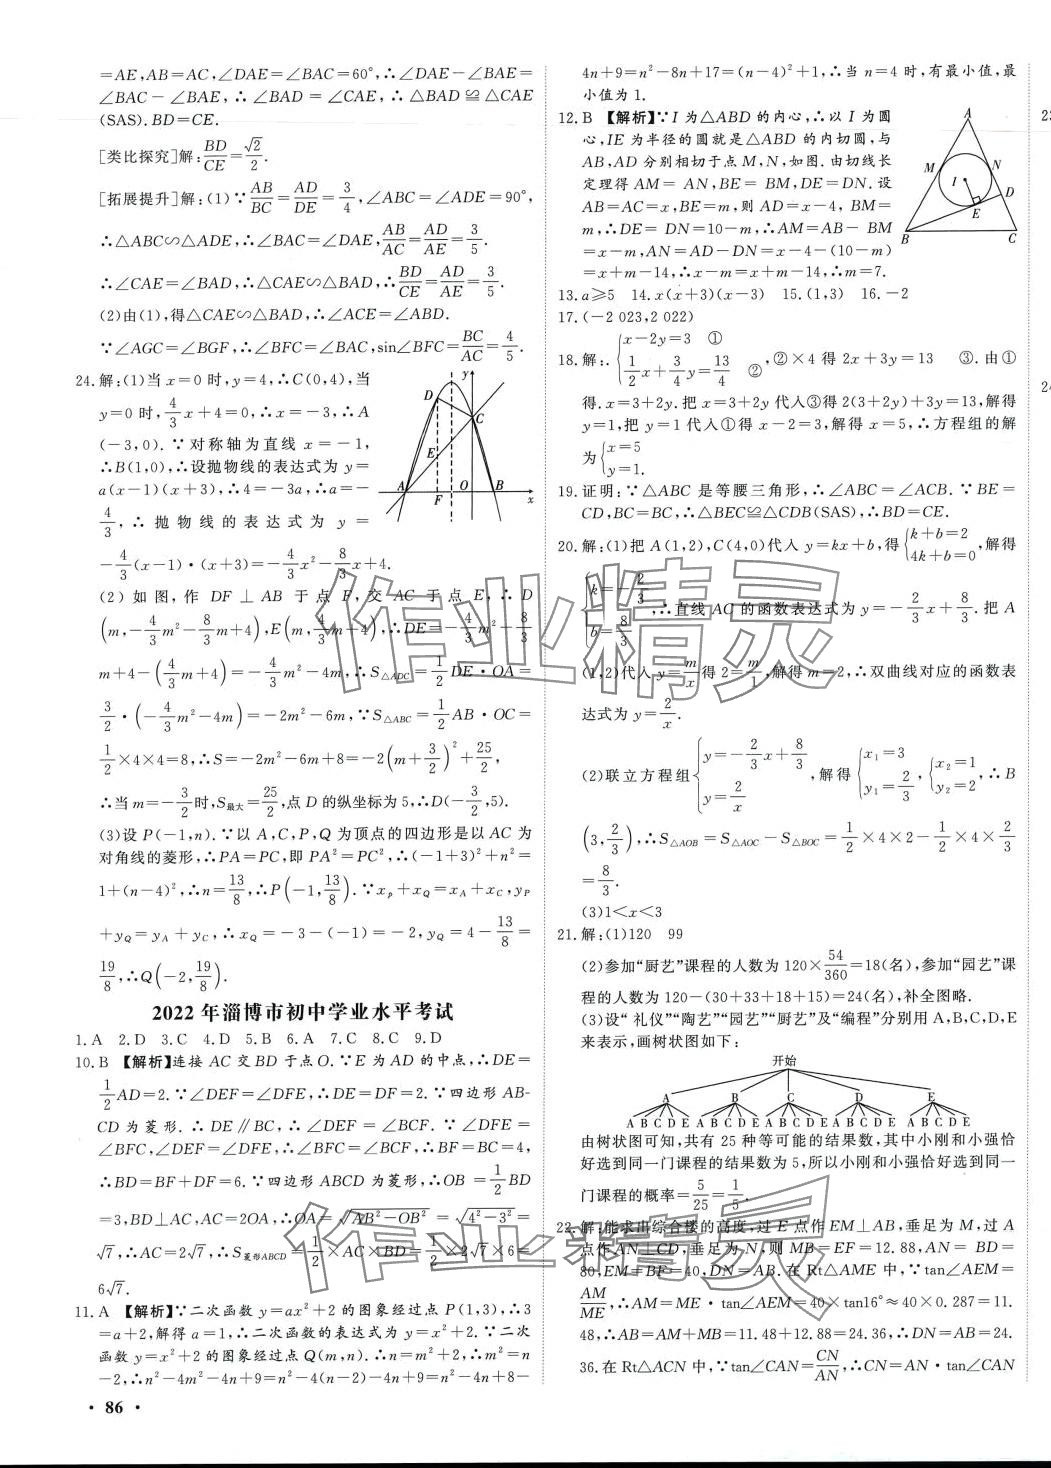 =AE,AB=AC,∠DAE=∠BAC=60°,∴∠DAE-∠BAE=
∠BAC-∠BAE,∴∠BAD=∠CAE,∴△BAD≌△CAE
(SAS).BD=CE.
[类比探究]解:BD/CE=√2/2.
[拓展提升]解:(1)∵AB/BC=AD/DE=3/4,∠ABC=∠ADE=90°,
∴△ABC∽△ADE,∴∠BAC=∠DAE,AB/AC=AD/AE=3/5.
∴∠CAE=∠BAD,∴△CAE∽△BAD,∴BD/CE=AD/AE=3/5.
(2)由(1),得△CAE∽△BAD,∴∠ACE=∠ABD.
∵∠AGC=∠BGF,∴∠BFC=∠BAC,sin∠BFC=BC/AC=4/5.
24.解:(1)当x=0时,y=4,∴C(0,4),当
y=0时,4/3x+4=0,∴x=-3,∴A
(-3,0).∵对称轴为直线x=-1,
∴B(1,0),∴设抛物线的表达式为y=
a(x-1)(x+3),∴4=-3a,∴a=-
4/3,∴抛物线的表达式为y=
-4/3(x-1)·(x+3)=-4/3x²-8/3x+4.
(2)如图,作DF⊥AB于点F,交AC于点E,∴D
(m,-4/3m²-8/3m+4),E(m,4/3m+4),∴DE=-4/3m²-8/3
m+4-(4/3m+4)=-4/3m²-4m,∴S△ADC=1/2DE·OA=
3/2·(-4/3m²-4m)=-2m²-6m,∵S△ABC=1/2AB·OC=
1/2×4×4=8,∴S=-2m²-6m+8=-2(m+3/2)²+25/2,
∴当m=-3/2时,S最大=25/2,点D的纵坐标为5,∴D(-3/2,5).
(3)设P(-1,n).∵以A,C,P,Q为顶点的四边形是以AC为
对角线的菱形,∴PA=PC,即PA²=PC²,∴(-1+3)²+n²=
1+(n-4)²,∴n=13/8,∴P(-1,13/8).∵xp+xQ=xA+xC,yP
+yQ=yA+yC,∴xQ=-3-(-1)=-2,yQ=4-13/8=
19/8,∴Q(-2,19/8).
y
D
C
E
A
F
O
B
x
2022年淄博市初中学业水平考试
1.A 2.D 3.C 4.D 5.B 6.A 7.C 8.C 9.D
10.B 【解析】连接AC交BD于点O.∵E为AD的中点,∴DE=
1/2AD=2.∵∠DEF=∠DFE,∴DE=DF=2.∵四边形AB-
CD为菱形.∴DE∥BC,∴∠DEF=∠BCF.∵∠DFE=
∠BFC,∠DEF=∠DFE,∴∠BFC=∠BCF,∴BF=BC=4,
∴BD=BF+DF=6.∵四边形ABCD为菱形,∴OB=1/2BD
=3,BD⊥AC,AC=2OA,∴OA=√AB²-OB²=√4²-3²=
√7,∴AC=2√7,∴S菱形ABCD=1/2×AC×BD=1/2×2√7×6=
6√7.
11.A 【解析】∵二次函数y=ax²+2的图象经过点P(1,3),∴3
=a+2,解得a=1,∴二次函数的表达式为y=x²+2.∵二次
函数y=x²+2的图象经过点Q(m,n).∴n=m²+2,∴m²=n
-2,∴n²-4m²-4n+9=n²-4(n-2)-4n+9=n²-4n+8-
· 86 ·
4n+9=n²-8n+17=(n-4)²+1,∴当n=4时,有最小值,最
小值为1.
12.B 【解析】∵I为△ABD的内心,∴以I为圆
心,IE为半径的圆就是△ABD的内切圆,与
AB,AD分别相切于点M,N,如图.由切线长
定理得AM=AN,BE=BM,DE=DN.设
AB=AC=x,BE=m,则AD=x-4,BM=
m,∴DE=DN=10-m,∴AM=AB-BM
=x-m,AN=AD-DN=x-4-(10-m)
=x+m-14,∴x-m=x+m-14,∴m=7.
A
M
N
I
D
E
B
C
13.a≥5 14.x(x+3)(x-3) 15.(1,3) 16.-2
17.(-2 023,2 022)
18.解:.{x-2y=3 ① 1/2x+3/4y=13/4 ②,②×4得2x+3y=13 ③.由①
得.x=3+2y.把x=3+2y代入③得2(3+2y)+3y=13,解得
y=1,把y=1代入①得x-2=3,解得x=5,∴方程组的解
为{x=5 y=1.
19.证明:∵△ABC是等腰三角形,∴∠ABC=∠ACB.∵BE=
CD,BC=BC,∴△BEC≌△CDB(SAS),∴BD=CE.
20.解:(1)把A(1,2),C(4,0)代入y=kx+b,得{k+b=2 4k+b=0,解得
{k=-2/3 b=8/3,∴直线AC的函数表达式为y=-2/3x+8/3.把A
(1,2)代入y=m/x得2=m/1,解得m=2,∴双曲线对应的函数表
达式为y=2/x.
(2)联立方程组{y=-2/3x+8/3 y=2/x,解得{x₁=3 y₁=2/3,{x₂=1 y₂=2,∴B
(3,2/3),∴S△AOB=S△AOC-S△BOC=1/2×4×2-1/2×4×2/3
=8/3.
(3)1<x<3
21.解:(1)120 99
(2)参加“厨艺”课程的人数为120×54/360=18(名),参加“园艺”课
程的人数为120-(30+33+18+15)=24(名),补全图略.
(3)设“礼仪”“陶艺”“园艺”“厨艺”及“编程”分别用A,B,C,D,E
来表示,画树状图如下:
开始
A B C D E
A B C D E A B C D E A B C D E A B C D E A B C D E
由树状图可知,共有25种等可能的结果数,其中小刚和小强恰
好选到同一门课程的结果数为5,所以小刚和小强恰好选到同一
门课程的概率=5/25=1/5.
22.解:能求出综合楼的高度,过E点作EM⊥AB,垂足为M,过A
点作AN⊥CD,垂足为N,则MB=EF=12.88,AN=BD=
80,EM=BF=40,DN=AB.在Rt△AME中,∵tan∠AEM=
AM/ME,∴AM=ME·tan∠AEM=40×tan16°≈40×0.287=11.
48,∴AB=AM+MB=11.48+12.88=24.36,∴DN=AB=24.
36.在Rt△ACN中,∵tan∠CAN=CN/AN,∴CN=AN·tan∠CAN
作业精灵
作业精灵